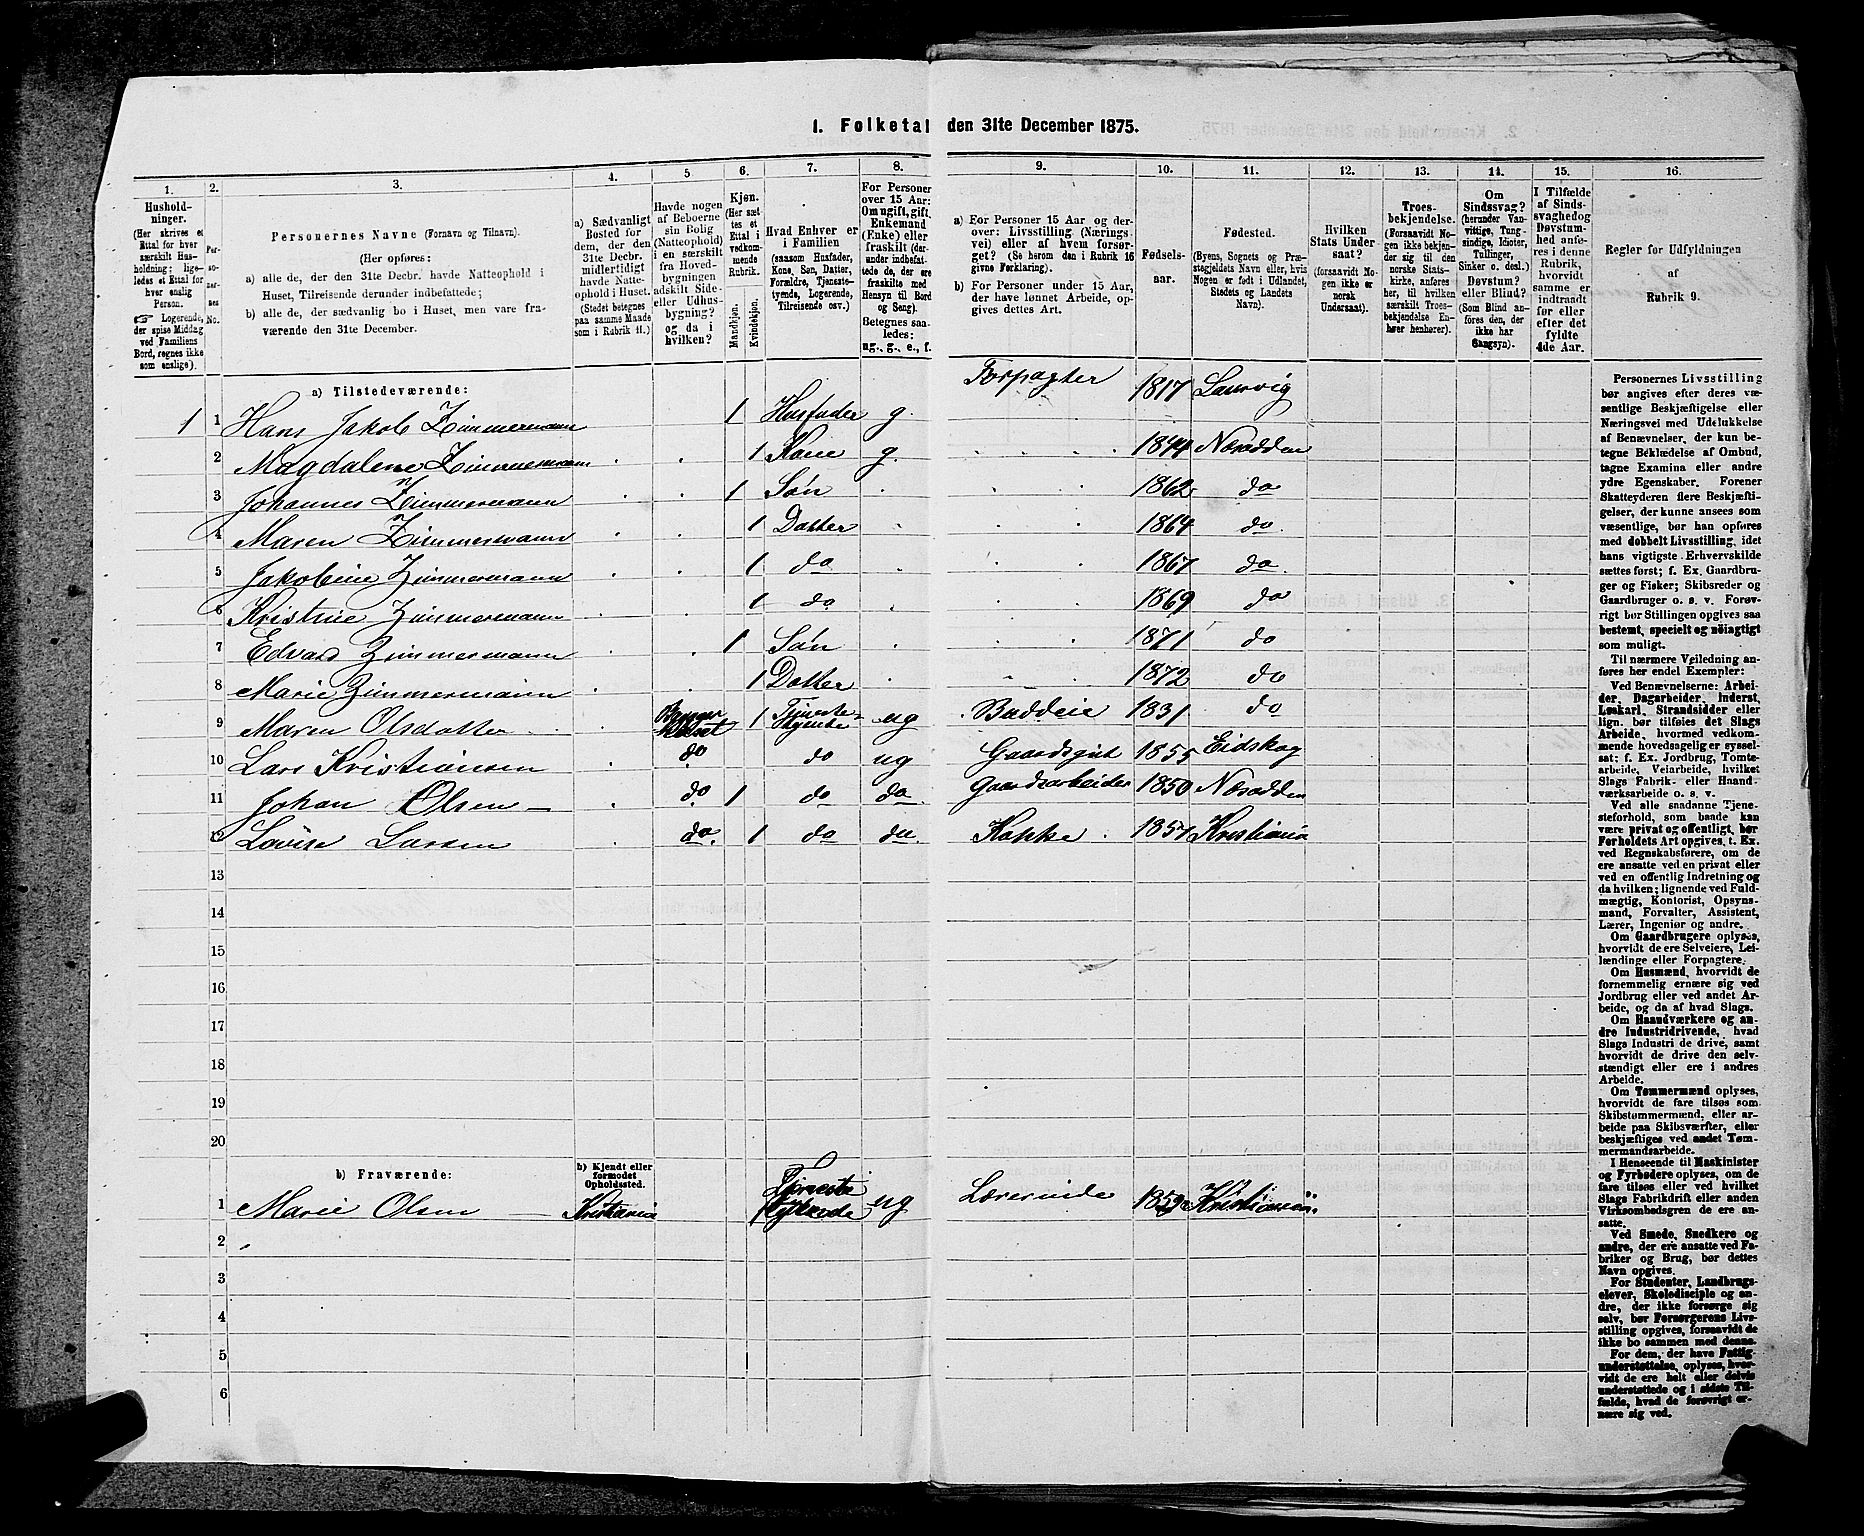 1. Folketal den 31te December 1875.
1. 2. 3. 4. 5 6. 7. 8. 9. 10. 11. 12. 13. 14. 15. 16.
Hushold-
ninger.
(Her skrives et
Ettal for hver
særskilt Hus-
holdning; lige-
ledes et Ettal
for hver
enslig
Person.
☞ Logerende,
der spise Middag
ved Familiens
Bord, regnes ikke
som enslige).
Per-
so-
ner-
nes
No.
Personernes Navne (Fornavn og Tilnavn).
(Her opføres:
a) alle de, der den 31te Decbr. havde Natteophold i
Huset, Tilreisende derunder indbefattede;
b) alle de, der sædvanlig bo i Huset, men vare fra-
værende den 31te December.
a) Sædvanligt
Bosted for
dem, der den
31te Decbr.
midlertidigt
havde Natte-
ophold i Huset.
(Stedet betegnes
paa samme Maade
som i Rubrik 11.)
Havde nogen
af Beboerne
sin Bolig
(Natteophold)
i en særskilt
fra Hoved-
bygningen
adskilt Side-
eller Udhus-
bygning?
og da i
hvilken?
Kjøn.
(Her sæt-
tes et
Ettal i
vedkom-
mende
Rubrik.
Mandkjøn.
Kvindekjøn.
Hvad Enhver er
i Familien
(saasom Husfader,
Kone, Søn, Datter,
Forældre, Tjeneste-
tyende, Logerende,
Tilreisende osv.)
For Personer
over 15 Aar:
Om ugift, gift,
Enkemand
(Enke) eller
fraskilt (der-
ander indbefat-
tede de, der ere
fraskilte med
Hensyn til Bord
og Seng).
Betegnes saa-
ledes:
ug., g., e., f.
a) For Personer 15 Aar og der-
over: Livsstilling (Nærings-
vei) eller af hvem forsør-
get? (Se herom den i Rubrik 16
givne Forklaring).
b) For Personer under 15 Aar,
der have lønnet Arbeide, op-
gives dettes Art.
Fødsels-
aar.
Fødested.
(Byens, Sognets og Præ-
stegjeldets Navn eller, hvis
Nogen er født i Udlandet,
Stedets og Landets
Navn).
Hvilken
Stats Under-
saat?
(forsaavidt No-
gen ikke er
norsk
Undersaat).
Troes-
bekjendelse.
(Forsaavidt No-
gen ikke bekjen-
der sig til den
norske Stats-
kirke, anføres
her, til hvilken
særskilt Troes-
bekjendelse En-
hver henhører).
Om
Sindssvag?
(herunder Van-
vittige, Tung-
sindige, Idioter,
Tullinger,
Sinker o. desl.)
Døvstum?
eller Blind?
(Som Blind an-
føres den, der
ikke har
Gangsyn).
I Tilfælde
af Sinds-
svaghed og
Døvstum-
hed anfø-
res i denne
Rubrik,
hvorvidt
samme er
indtraadt
før eller
efter det
fyldte
4de Aar.
Regler for Udfyldningen
af
Rubrik 9.
a) Tilstedeværende:
1 1 Hans Jakob Zimmermann 1 Husfader g. Forpagter 1817 Laurvig
2 Magdalene Zimmermann 1 Kone g. 1844 Næsodden
3 Johannes Zimmermann 1 Søn 1862 do
4 Maren Zimmermann 1 Datter 1864 do
5 Jakobine Zimmermann 1 do 1867 do
6 Kristine Zimmermann 1 do 1869 do
7 Edvard Zimmermann 1 Søn 1871 do
8 Marie Zimmermann 1 Datter 1872 do
9 Maren Olsdatter 1 Tjeneste- ug Buddeie 1831 do
10 Lars Kristiansen do do ug Gaardsgut 1855 Eidskog
11 Johan Olsen do 1 do do Gaardsarbeider 1850 Næsodden
12 Lovise Larsen do. 1 do do. Kokke 1857 Kristiania
13
14
15
16
17
18
19
20
b) Fraværende:
b) Kjendt eller
formodet
Opholdssted.
1 Marie Olsen Kristiania Tjeneste ug Lærerinde Kristiania.
2
3
4
5
6
Personernes Livsstilling
bør angives efter deres væ-
sentlige Beskjæftigelse eller
Næringsvei med Udelukkelse
af Benævnelser, der kun be-
tegne Beklædelse af Ombud,
tagne Examina eller andre
ydre Egenskaber. Forener
Skatteyderen flere Beskjæfti-
gelser, der kunne ansees som
væsentlige, bør han opføres
med dobbelt Livsstilling, idet
hans vigtigste Erhvervskilde
sættes først; f. Ex. Gaardbru-
ger og Fisker; Skibsreder og
Gaardbruger o. s. v. Forøv-
rigt bør Stillingen opgives saa
bestemt, specielt og nöiagtigt
som muligt.
Til nærmere Veiledning an-
føres her endel Exempler:
Ved Benævnelserne: Arbei-
der, Dagarbeider, Inderst,
Løskarl, Strandsidder eller
lign. bør tilføies det Slags
Arbeide, hvormed vedkom-
mende hovedsagelig er syssel-
sat; f. Ex. Jordbrug, Tomte-
arbeide, Veiarbeide, hvilket
Slags Fabrik- eller Haand-
værksarbeide o. s. v.
Ved alle saadanne Tjene-
steforhold, som baade kan
være privat og offentligt, bør
Forholdets Art opgives, t. Ex.
ved Regnskabsførere, om de
ere ansatte ved en privat eller
ved en offentlig Indretning og
da hvilken; lignende ved Fuld-
mægtig, Kontorist, Opsyns-
mand, Forvalter, Assistent,
Lærer, Ingeniør og andre.
Om Gaardbrugere oplyses,
hvorvidt de ere Selveiere, Lei-
lændinge eller Forpagtere.
Om Husmænd, hvorvidt de
fornemmelig ernære sig ved
Jordbrug eller ved andet Ar-
beide, og da af hvad Slags.
Om Haandværkere og an-
dre Industridrivende, hvad
Slags Industri de drive, samt
hvorvidt de drive den selv-
stændigt eller ere i andres
Arbeide.
Om Tømmermænd oplyses,
hvorvidt de fare tilsøs som
Skibstømmermænd, eller ar-
beide paa Skibsværfter, eller
beskjæftiges ved andet Tøm-
mermandsarbeide.
I Henseende til Maskinister
og Fyrbødere oplyses, om de
fare tilsøs eller ved hvilket
Slags Fabrikdrift eller anden
Virksomhedsgren de ere an-
satte.
Ved Smede, Snedkere og
andre, der ere ansatte ved Fa-
briker og Brug, bør dettes
Navn opgives.
For Studenter, Landbrugs-
elever, Skoledisciple og an-
dre, der ikke forsørge sig
selv, bør Forsørgerens Livs-
stilling opgives, forsaavidt de
ikke bo sammen med denne.
For dem, der have Fattig-
understøttelse, oplyses, hvor-
vidt de ere helt eller delvis
understøttede og i sidste Til-
fælde, hvad de forøvrigt er-
nære sig ved.